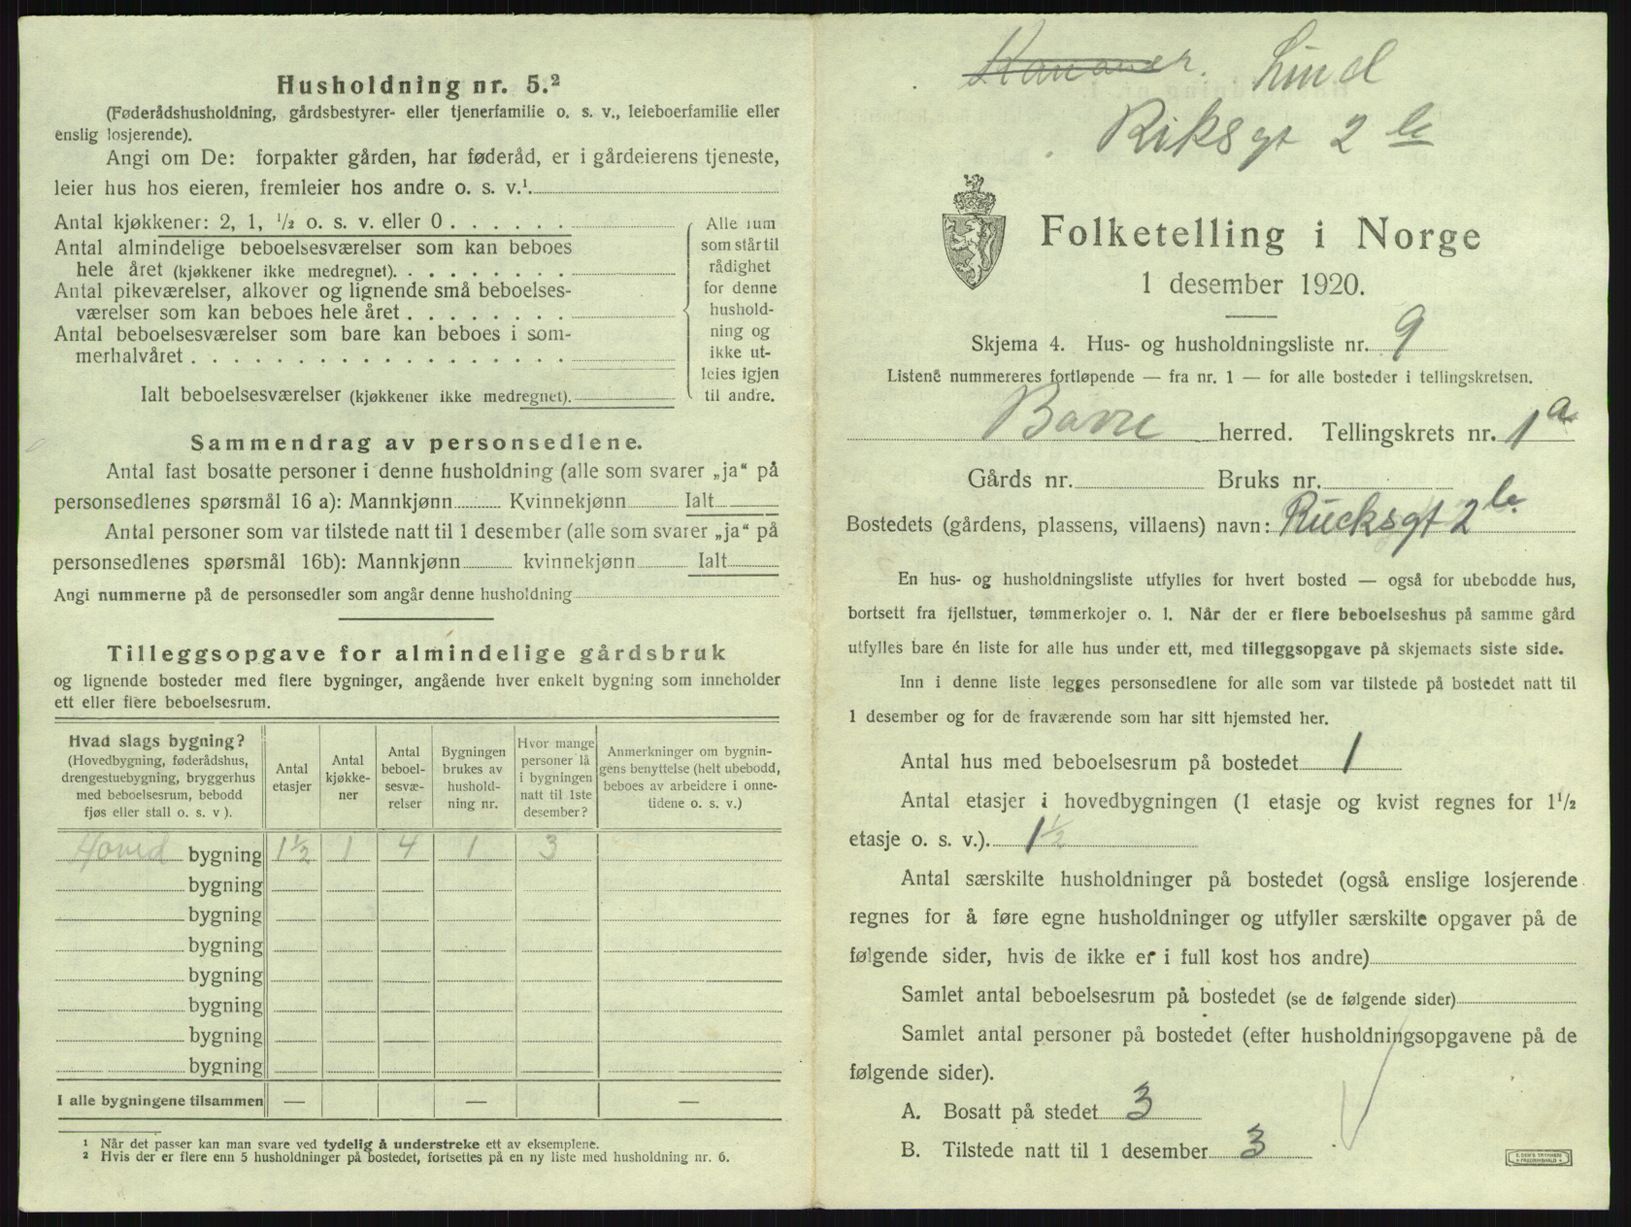 Husholdning nr. 5.²
(Føderådshusholdning, gårdsbestyrer- eller tjenerfamilie o. s. v., leieboerfamilie eller
enslig losjerende).
Angi om De: forpakter gården, har føderåd, er i gårdeierens tjeneste,
leier hus hos eieren, fremleier hos andre o. s. v.¹.
Antal kjøkkener: 2, 1, ½ o. s. v. eller 0 . . . . . .
Antal almindelige beboelsesværelser som kan beboes
hele året (kjøkkener ikke medregnet). . . . . . . . .
Antal pikeværelser, alkover og lignende små beboelses-
værelser som kan beboes hele året . . . . . . . .
Antal beboelsesværelser som bare kan beboes i som-
merhalvåret . . . . . . . . . . . . . . . . .
Ialt beboelsesværelser (kjøkkener ikke medregnet).
Alle rum
som står til
rådighet
for denne
hushold-
ning og
ikke ut-
leies igjen
til andre.
Sammendrag av personsedlene.
Antal fast bosatte personer i denne husholdning (alle som svarer „ja“ på
personsedlenes spørsmål 16 a): Mannkjønn Kvinnekjønn Ialt
Antal personer som var tilstede natt til 1 desember (alle som svarer „ja“ på
personsedlenes spørsmål 16b): Mannkjønn kvinnekjønn Ialt
Angi nummerne på de personsedler som angår denne husholdning
Tilleggsopgave for almindelige gårdsbruk
og lignende bosteder med flere bygninger, angående hver enkelt bygning som inneholder
ett eller flere beboelsesrum.
Hvad slags bygning?
(Hovedbygning, føderådshus,
drengestuebygning, bryggerhus
med beboelsesrum, bebodd
fjøs eller stall o. s. v ).
Antal
etasjer
Antal
kjøkke-
ner
Antal
beboel-
sesvæ-
relser
Bygningen
brukes av
hushold-
ning nr.
Hvor mange
personer lå
i bygningen
natt til 1ste
desember?
Anmerkninger om bygnin-
gens benyttelse (helt ubebodd,
beboes av arbeidere i onne-
tidene o. s. v.)
Hovid bygning 1½ 1 4 1 3
bygning
bygning
bygning
bygning
bygning
bygning
bygning
I alle bygningene tilsammen — — —
¹ Når det passer kan man svare ved tydelig å understreke ett av eksemplene.
² Hvis der er flere enn 5 husholdninger på bostedet, fortsettes på en ny liste med husholdning nr. 6.
Lind
Riksgt 2 b
Folketelling i Norge
1 desember 1920.
Skjema 4. Hus- og husholdningsliste nr. 9
Listene nummereres fortløpende — fra nr. 1 — for alle bosteder i tellingskretsen.
Borre herred. Tellingskrets nr. 1 a
Gårds nr. Bruks nr.
Bostedets (gårdens, plassens, villaens) navn: Rucksgt 2 b
En hus- og husholdningsliste utfylles for hvert bosted — også for ubebodde hus,
bortsett fra fjellstuer, tømmerkojer o. l. Når der er flere beboelseshus på samme gård
utfylles bare én liste for alle hus under ett, med tilleggsopgave på skjemaets siste side.
Inn i denne liste legges personsedlene for alle som var tilstede på bostedet natt til
1 desember og for de fraværende som har sitt hjemsted her.
Antal hus med beboelsesrum på bostedet 1
Antal etasjer i hovedbygningen (1 etasje og kvist regnes for 1½
etasje o. s. v.). 1½
Antal særskilte husholdninger på bostedet (også enslige losjerende
regnes for å føre egne husholdninger og utfyller særskilte opgaver på de
følgende sider, hvis de ikke er i full kost hos andre)
Samlet antal beboelsesrum på bostedet (se de følgende sider)
Samlet antal personer på bostedet (efter husholdningsopgavene på de
følgende sider).
A. Bosatt på stedet 3
B. Tilstede natt til 1 desember 3